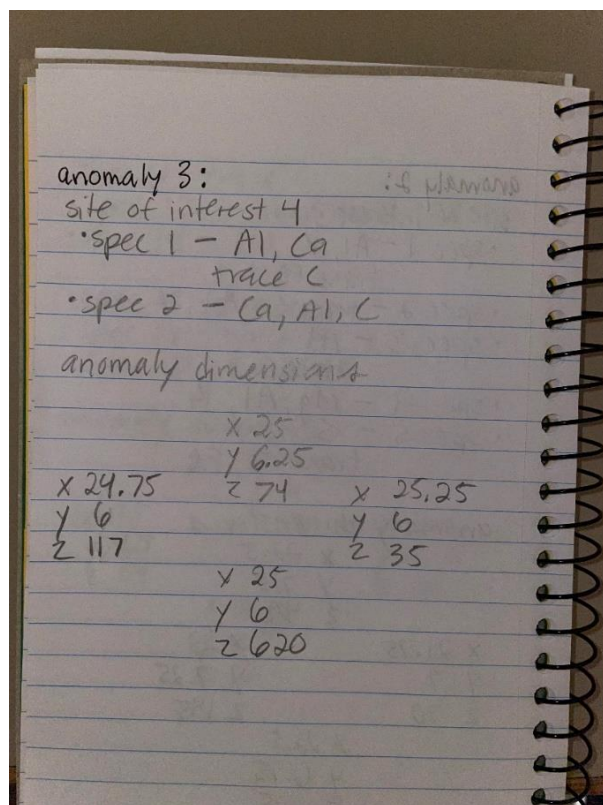 anomaly 3:
site of interest 4
•spec 1 – Al, Ca
trace C
•spec 2 – Ca, Al, C
anomaly dimensions
x 25
y 6.25
z 74
x 24.75
y 6
z 117
x 25.25
y 6
z 35
x 25
y 6
z 620